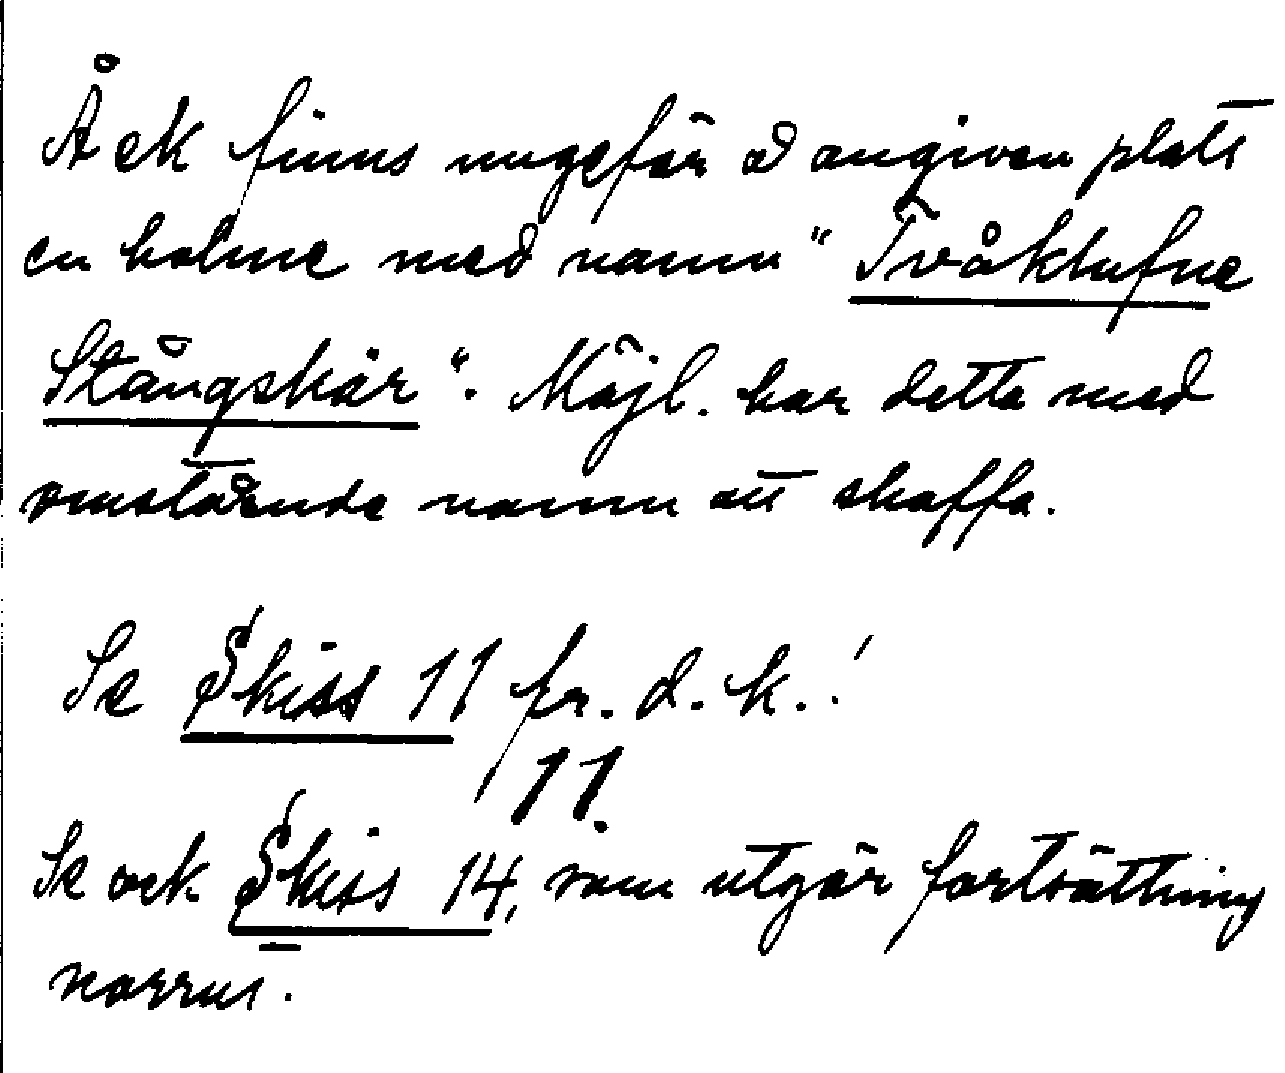 Å ek finns ungefär å angiven plats
en holme med namn "Tvåklufne
Stångskär". Möjl. har detta med
omstående namn att skaffa.
Se Skiss 11 fr. d. k..!
11.
Se ock Skiss 14, som utgör fortsättning
norrut.